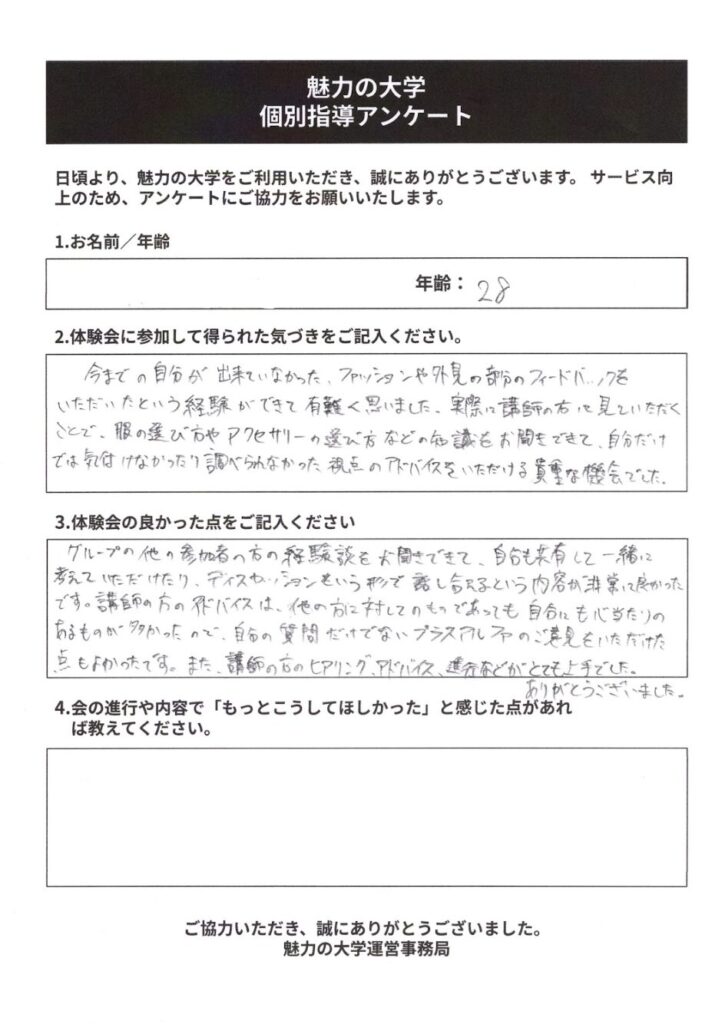 魅力の大学
個別指導アンケート
日頃より、魅力の大学をご利用いただき、誠にありがとうございます。 サービス向
上のため、アンケートにご協力をお願いいたします。
1.お名前／年齢
年齢： 28
2.体験会に参加して得られた気づきをご記入ください。
今までの自分が出来ていなかった、ファッションや外見の部分のフィードバックを
いただいたという経験ができて有難く思いました。実際に講師の方に見ていただく
ことで、服の選び方やアクセサリーの選び方などの知識をお聞きできて、自分だけ
では気付けなかったり調べられなかった視点のアドバイスをいただける貴重な機会でした。
3.体験会の良かった点をご記入ください
グループの他の参加者の方の経験談をお聞きできて、自分も共有して一緒に
考えていただけたり、ディスカッションという形で話し合えるという内容が非常に良かった
です。講師の方のアドバイスは、他の方に対してのものであっても自分にも心当たりの
あるものが多かったので、自分の質問だけでないプラスアルファのご意見をいただけた
点もよかったです。また、講師の方のヒアリング、アドバイス、進行などがとても上手でした。
ありがとうございました。
4.会の進行や内容で「もっとこうしてほしかった」と感じた点があれ
ば教えてください。
ご協力いただき、誠にありがとうございました。
魅力の大学運営事務局